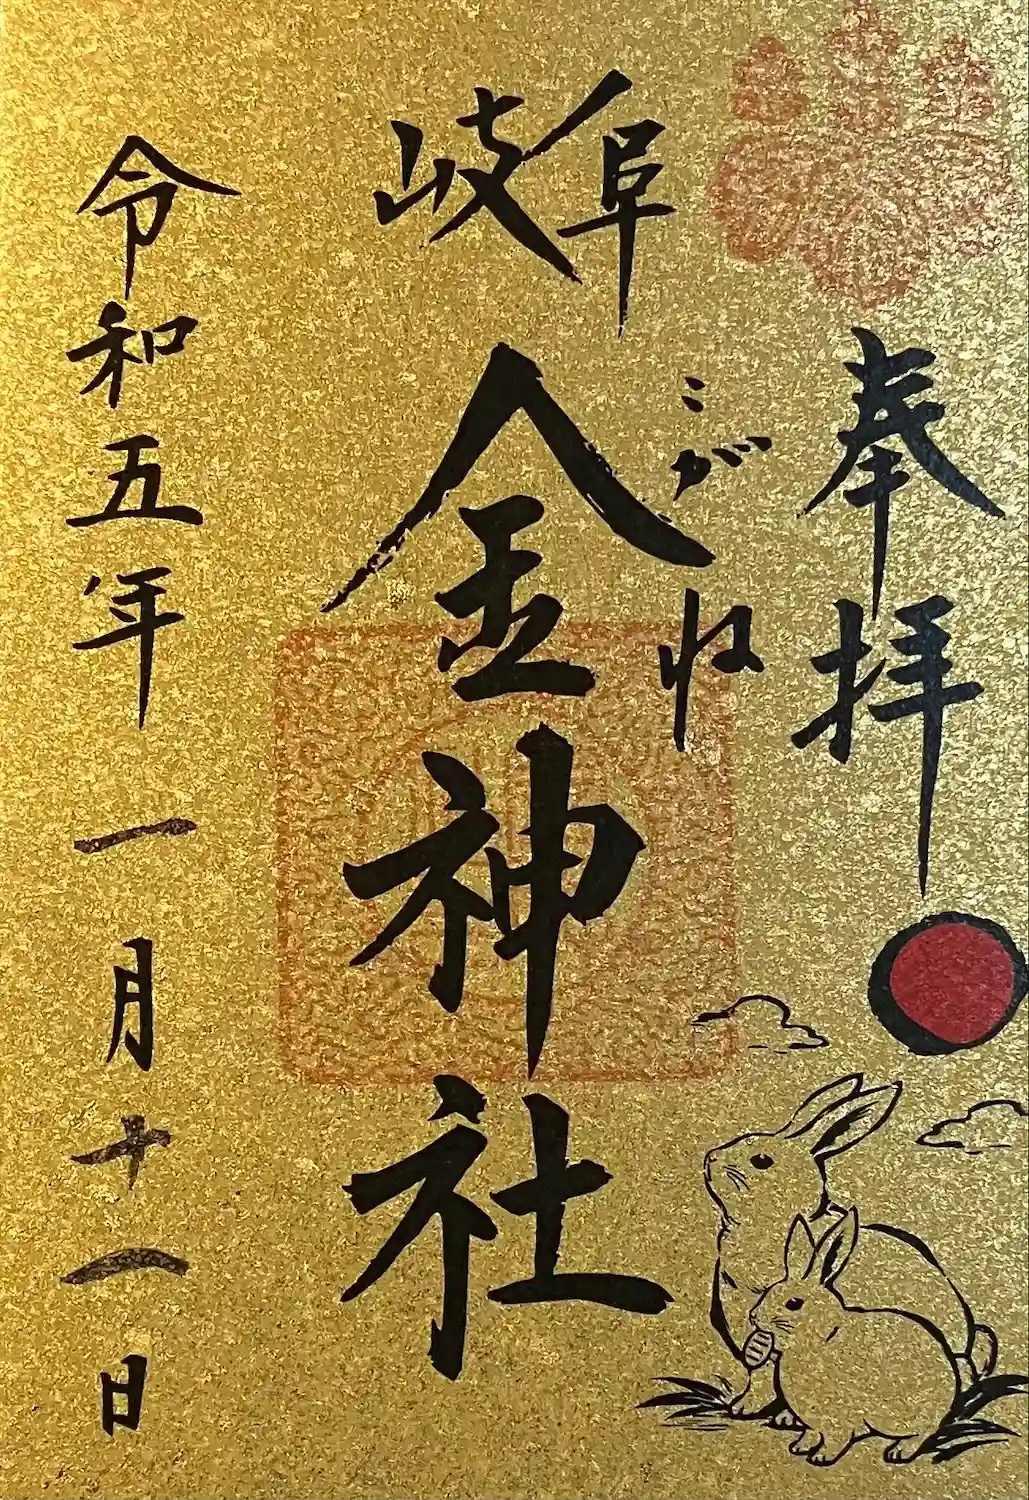 奉拝
岐阜
こがね
金神社
令和五年一月十一日